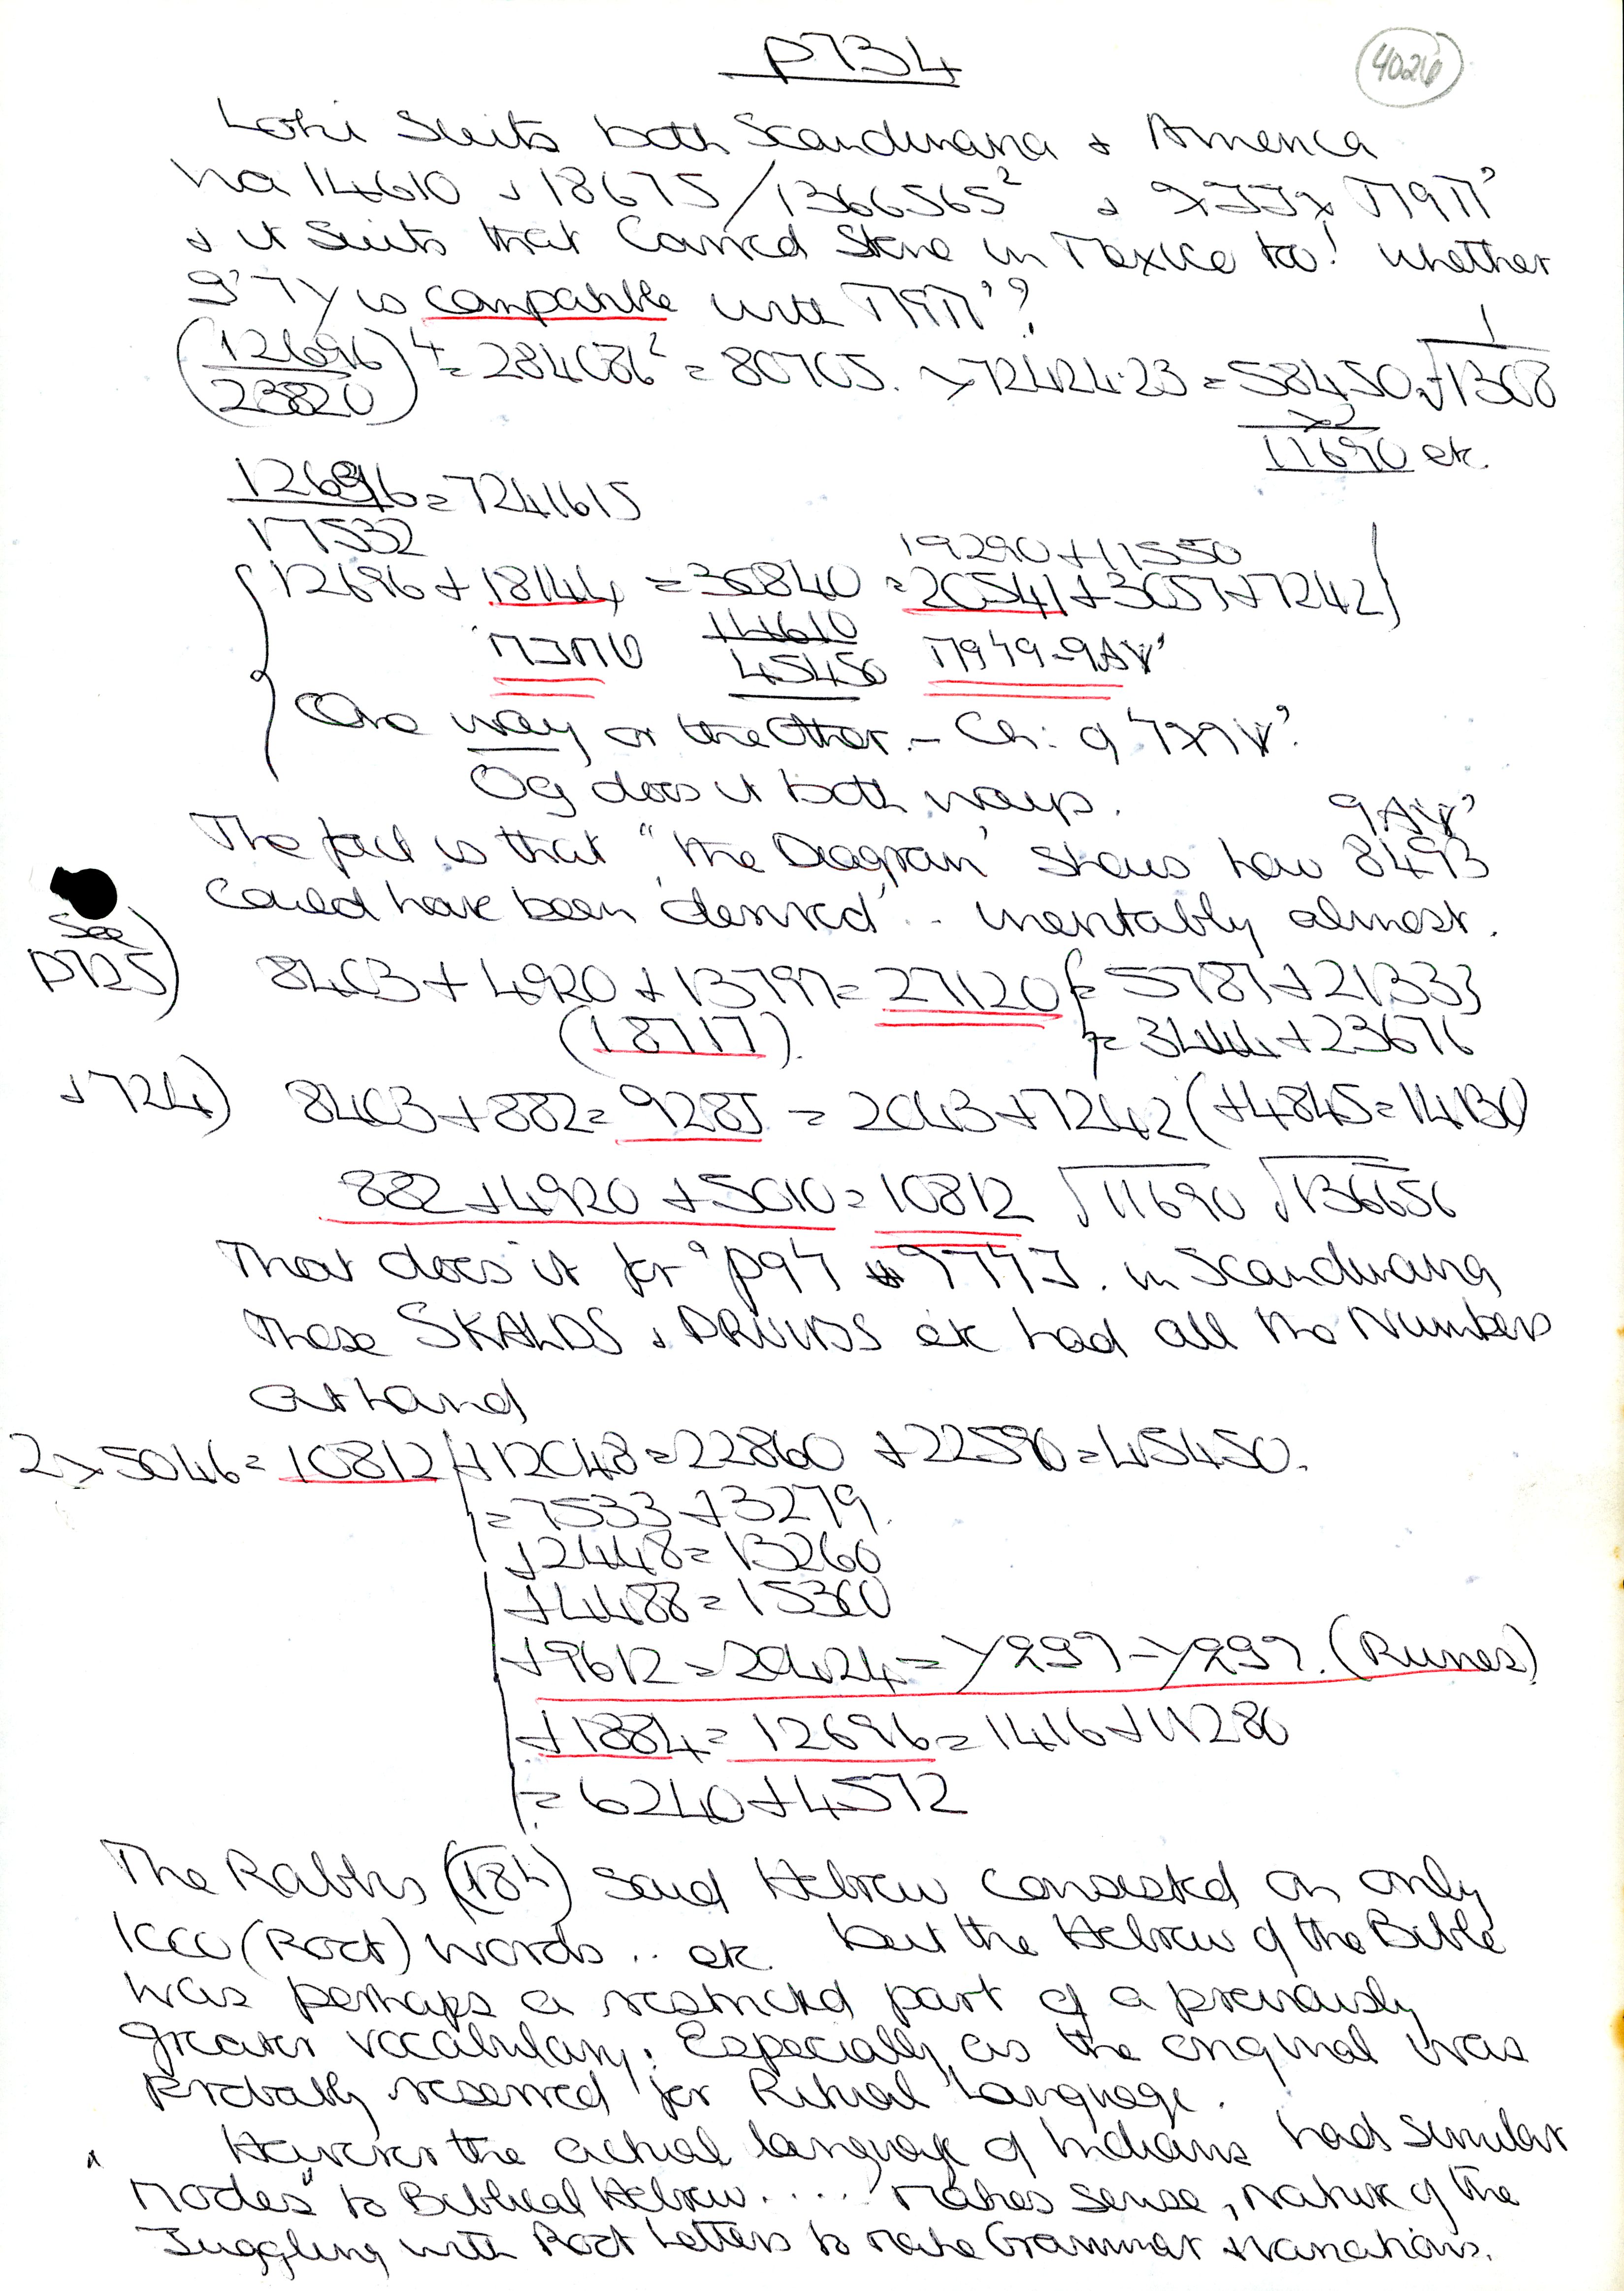 P734
4026
Loki Suits both Scandinavia + America
via 14610 + 18675/1366565²
+ it Suits that Carved Stone in Mexico too! whether
is compatible with
(12696/23820)⁴ = 284086² = 80705. × 72424.23 = 58450, √1308
×2
11690 etc.
12696/17532 = 7241615
19290+11550
{12696 + 18144 = 30840 = 20541+3057+7242}
+14610
45450
One way or the Other. – Ch:
Og does it both ways.
The fact is that "the Diagram" shows how 8493
could have been 'derived' .. inevitably almost.
See
P725) 8403 + 4920 + 13797 = 27120 {= 5787+21333}
(18717). = 3444+23676
+724) 8403+882 = 9285 = 2043+7242 (+4845=14130)
882+4920+5010=10812 √11690 √136656
That does it for in Scandinavia
These SKALDS + DRUIDS etc had all the Numbers
at hand
2×5046=10812 +12048=22860 +22590=45450.
=7533+3279.
+2448=13260
+4488=15300
+9612=20424= (Runes)
+1884=12696=1416+11280
=6240+4572
The Rabbis (184) said Hebrew consisted on only
1000 (Root) words .. etc. but the Hebrew of the Bible
was perhaps a restricted part of a previously
greater vocabulary: Especially as the original was
Probably reserved for Ritual Language.
However the actual language of Indians had similar
"Modes" to Biblical Hebrew..... Makes sense, Nature of the
Juggling with Root Letters to make Grammar + variations.